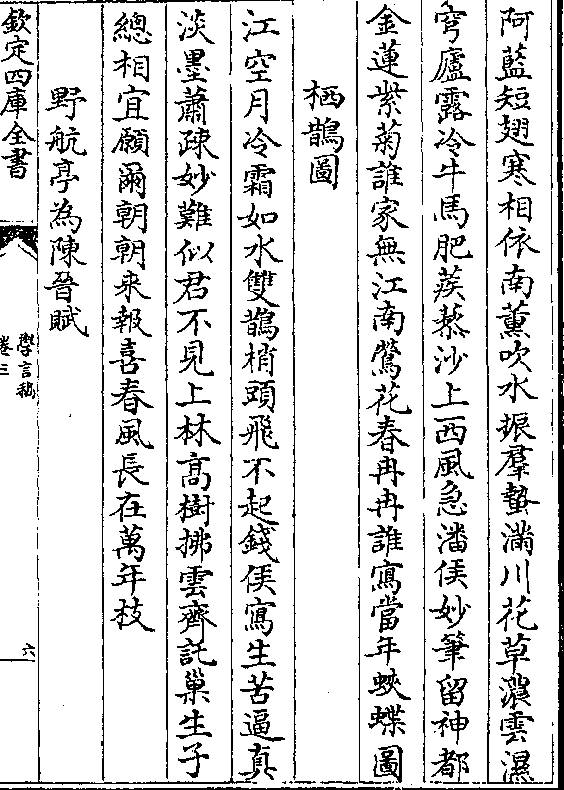 阿藍短翅寒相依南薰吹水振羣蟄滿川花草濃雲濕
穹廬露冷牛馬肥蒺藜沙上西風急潘侯妙筆留神都
金蓮紫菊誰家無江南鶯花春冉冉誰寫當年蛺蝶圖
栖鵲圖
江空月冷霜如水雙鵲梢頭飛不起錢侯寫生苦逼真
淡墨蕭疎妙難似君不見上林高樹拂雲齊託巢生子
總相宜願爾朝朝來報喜春風長在萬年枝
野航亭為陳晉賦
欽定四庫全書
學言稿
卷三
六